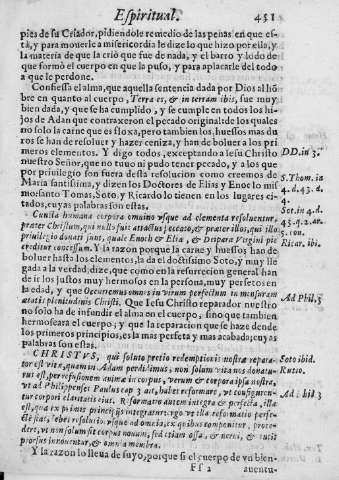 Espiritual. 451
pies de su Criador, pidiendole remedio de las penas en que es-
tà, y para moverle a misericordia le dize lo que hizo por ella, y
la materia de que la criò que fue de nada, y el barro y lodo de
que formò el cuerpo en que la puso, y para aplacarle del todo
a que le perdone.
Confiessa el alma, que aquella sentencia dada por Dios al hõ
bre en quanto al cuerpo, Terra es, & in terram ibis, fue muy
bien dada, y que se ha cumplido, y se cumple en todos los hi-
jos de Adan que contraxeron el pecado original: de los quales
no solo la carne que es floxa, pero tambien los huessos mas du
ros se han de resoluer y hazer ceniza, y han de boluer a los pri
meros elementos. Y digo todos, exceptando a Iesu Christo
nuestro Señor, que no tuuo ni pudo tener pecado, y a los que
por priuilegio son fuera desta resolucion como creemos de
Maria santissima, y dizen los Doctores de Elias y Enoc lo mis
mo santo Tomas, Soto, y Ricardo lo tienen en los lugares ci-
tados, cuyas palabras son estas.
DD. in 3.
S. Thom. in
4. d. 43. d.
4.
Sot. in 4. d
43. q. ar.
Ricar. ibi.
Cuncta humana corpora omnino vsque ad elementa resoluentur,
præter Christum, qui nullo fuit attactus
priuilegio donati sunt, quale Enoch & Eliæ, & Diuparæ Virgini pie
creditur concessum. Y la razon porque la carne y huessos han de
boluer hasta los elementos, la da el doctissimo Soto, y muy lle
gada a la verdad; dize, que como en la resurreccion general han
de ir los justos muy hermosos en la persona, muy perfetos en
la edad, y que Occurremus omnes in virum perfectum in mensuram
ætatis plenitudinis Christi. Que Iesu Christo reparador nuestro
no solo ha de infundir el alma en el cuerpo, sino que tambien
hermoseara el cuerpo; y que la reparacion que se haze dende
los primeros principios, es la mas perfeta y mas acabada; cuyas
palabras son estas.
Ad Phil. 3
CHRISTVS, qui soluto pretio redemptionis nostræ repara-
tor est vitæ, quam in Adam perdidimus, non solum vita nos donatu-
rus est, per refusionem animæ in corpus, verum & corpora ipsa nostra,
vt ad Philippenses Paulus cap 3 ait, habet reformare, vt configuren-
tur corpori claritatis eius. Reformatio autem integra & perfecta, illa
est, quæ ex primis principijs integratur: ergo ve illa reformatio perfe-
ctè fiat, debet resolutio vsque ad omnia, ex quibus componitur, proce-
dere; vt non solum sit corpus nouum, sed etiam ossa, & nerui, & cutis
prorsus innouentur, & omnia membra.
Soto ibid.
Ratio.
Ad Phil 3
Y la razon lo lleua de suyo, porque si el cuerpo de vn bien-
Ff 2 auentu-